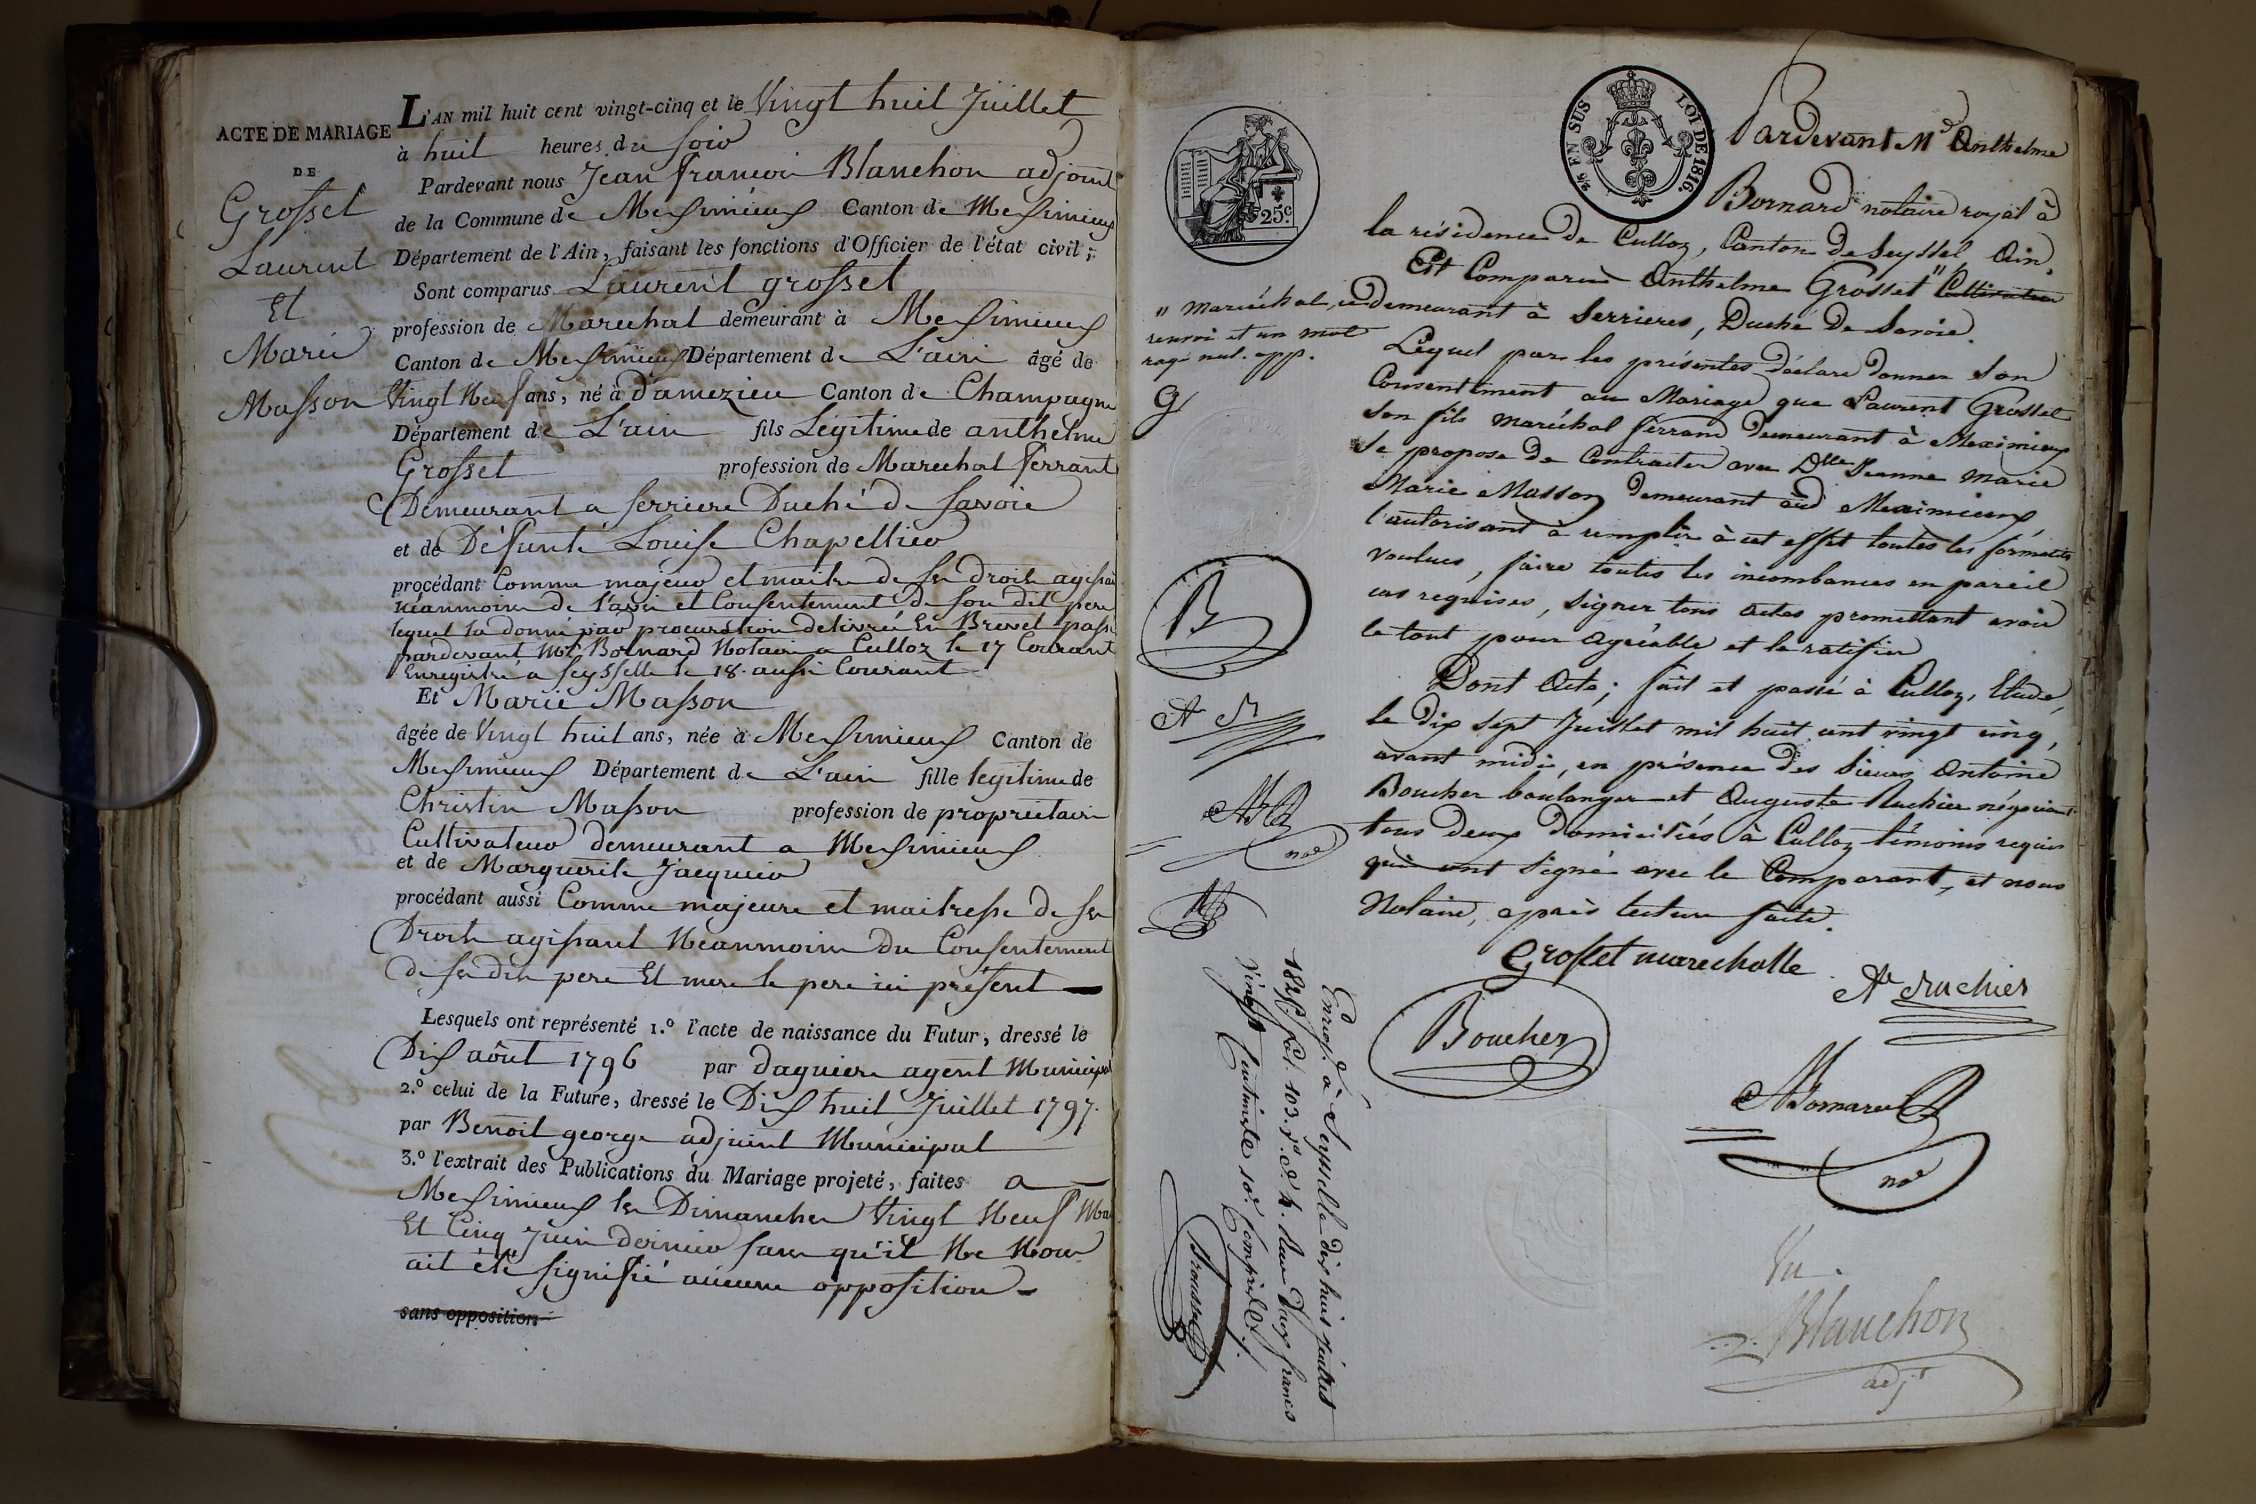 ACTE DE MARIAGE
DE
Grosset
Laurent
Et
Marie
Masson
L'AN mil huit cent vingt-cinq et le Vingt huit Juillet
à huit heures du soir
Pardevant nous Jean François Blanchon adjoint
de la Commune de Meximieux Canton de Meximieux
Département de l'Ain, faisant les fonctions d'Officier de l'état civil ;
Sont comparus Laurent grosset
profession de Marechal demeurant à Meximieux
Canton de Meximieux Département de L'ain âgé de
Vingt Neuf ans, né à d'amezieu Canton de Champagne
Département de L'ain fils Legitime de anthelme
Grosset profession de Marechal ferrant
Demeurant a serriere Duché de savoie
et de Défunte Louise Chapellier
procédant Comme majeur et maitre de ses droits agissant
néanmoins de l'avis et Consentement de son dit pere
lequel la donné par procuration delivrée En Brevet passé
pardevant Me Bornard Notaire a Culloz le 17 Courant
Enregistré a Seysselle le 18. aussi Courant
Et Marie Masson
âgée de Vingt huit ans, née à Meximieux Canton de
Meximieux Département de L'ain fille legitime de
Christin Masson profession de propriétaire
Cultivateur demeurant a Meximieux
et de Marguerite Jacquier
procédant aussi Comme majeure et maitresse de ses
Droits agissant Neanmoins du Consentement
de ses dits pere Et mere le pere ici présent
Lesquels ont représenté 1.º l'acte de naissance du Futur, dressé le
Dix aôut 1796 par daguiere agent Municipal
2.º celui de la Future, dressé le Dix huit Juillet 1797.
par Benoit george adjoint Municipal
3.º l'extrait des Publications du Mariage projeté, faites a
Meximieux les Dimanches Vingt Neuf Mai
Et Cinq Juin dernier sans qu'il Ne Nous
ait été signifié aucune opposition
sans opposition
25c.
2/5 EN SUS
LOI DE 1816.
Pardevant Me Anthelme
Bornard notaire royal à
la résidence de Culloz, Canton de Seyssel, Ain,
Est Comparu Anthelme Grosset " Cultivateur
demeurant à Serrieres, Duché de Savoie.
" maréchal, ce
renvoi et un mot
rayé nul. app.
G
Lequel par les présentes déclare donner son
Consentement au Mariage que Laurent Grosset
son fils maréchal ferrand demeurant à Meximieux
se propose de Contracter avec Dlle Jeanne Marie
Marie Masson demeurant aud Meximieux,
l'autorisant à remplir à cet effet toutes les formalités
voulues, faire toutes les incombances en pareil
cas requises, signer tous actes promettant avoir
le tout pour agréable et le ratifier
Dont Acte ; fait et passé à Culloz, Etude,
le dix sept Juillet mil huit cent vingt cinq,
avant midi, en présence des Sieurs Antoine
Boucher boulanger et Auguste Ruchier négociant
tous deux domiciliés à Culloz témoins requis
qui ont signé avec le Comparant, et nous
Notaire, après lecture faite.
Grosset marechalle
Ate Ruchier
Boucher
ABornard
nore
B
At R
nore
Enregé à Seysselle dix huit juillet
1825 fol. 103. r. c. 4. Reçu Deux francs
Vingt Centimes 10e Compris.
Vu.
Blanchon
adjt